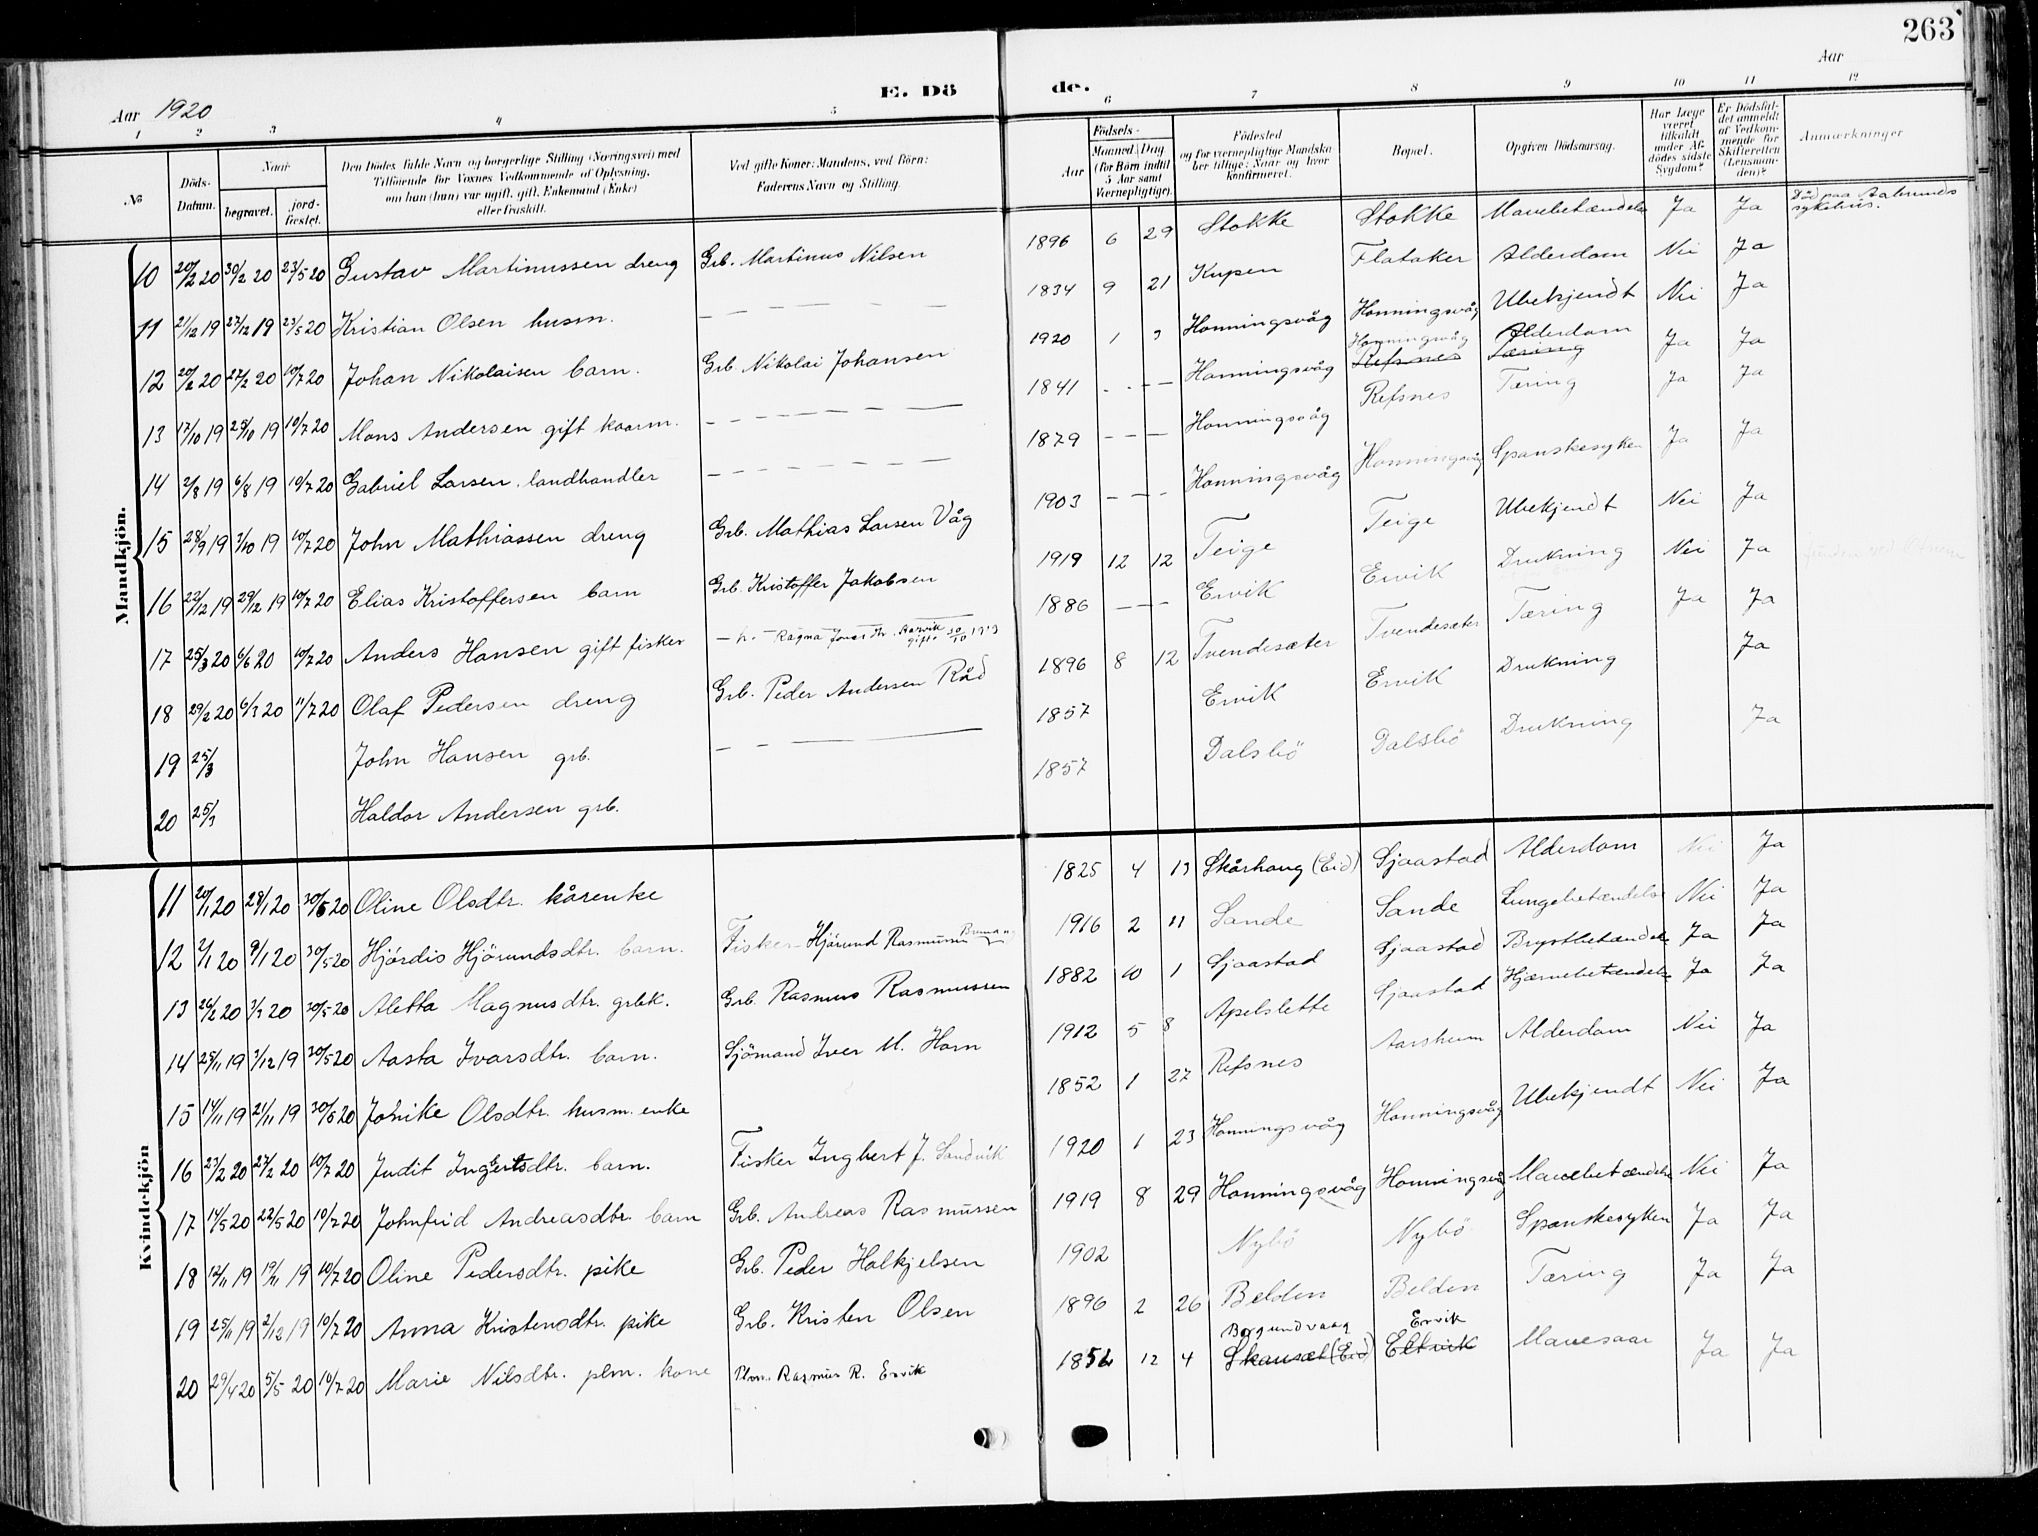 263
Aar 1920
E. Dö de.
Aar
1 2 3 4 5 6 7 8 9 10 11 12
No
Döds-Datum.
Naar
begravet.
jord-fæstet.
Den Dödes fulde Navn og borgerlige Stilling (Næringsvei) med Tilföiende for Voxnes Vedkommende af Oplysning, om han (hun) var ugift, gift, Enkemand (Enke) eller fraskilt.
Ved gifte Koner: Mandens, ved Börn: Faderens Navn og Stilling.
Födsels-
Aar
Maaned. Dag
(for Börn indtil 5 Aar samt Værnepligtige).
Födested og for værnepligtige Mandskaber tillige: Naar og hvor konfirmeret.
Bopæl.
Opgiven Dödsaarsag.
Har Læge været tilkaldt under Afdödes sidste Sygdom?
Er Dödsfaldet anmeldt af Vedkommende for Skifteretten (Lensmanden)?
Anmærkninger
Mandkjön.
10 20/2 20 30/2 20 23/5 20 Gustav Martinussen dreng Grb. Martinus Nilsen 1896 6 29 Stokke Stokke Mavebetændelse Ja Ja Död paa Aalesunds sykehus.
11 21/12 19 27/12 19 23/5 20 Kristian Olsen husm. — — — 1834 9 21 Kupen Flataker Alderdom Nei Ja
12 20/2 20 27/2 20 10/7 20 Johan Nikolaisen barn. Grb. Nikolai Johansen 1920 1 3 Honningsvåg Honningsvåg Ubekjendt Nei Ja
13 17/10 19 25/10 19 10/7 20 Mons Andersen gift kaarm. — — — 1841 — — Honningsvåg Honningsvåg Refsnes Alderdom Tæring Ja Ja
14 2/8 19 6/8 19 10/7 20 Gabriel Larsen, landhandler — — — 1879 — — Honningsvåg Refsnes Tæring Ja Ja
15 28/9 19 3/10 19 10/7 20 John Mathiassen dreng Grb. Mathias Larsen Våg 1903 — — Honningsvåg Honningsvåg Spanskesyken Ja Ja
16 22/12 19 29/12 19 10/7 20 Elias Kristoffersen barn Grb. Kristoffer Jakobsen 1919 12 12 Teige Teige Ubekjendt Nei Ja
17 25/3 20 6/6 20 10/7 20 Anders Hansen gift fisker 1886 — — Ervik Ervik Drukning Nei Ja
18 29/2 20 6/3 20 11/7 20 Olaf Pedersen dreng Grb. Peder Andersen Råd 1896 8 12 Tvendesæter Tvendesæter Tæring Ja Ja
19 25/3 John Hansen grb. — — — 1857 Ervik Ervik Drukning Ja
20 25/3 Haldor Andersen grb. 1857 Dalsbö Dalsbö Drukning Ja
Kvindekjön
11 20/1 20 28/1 20 30/5 20 Oline Olsdtr. kårenke 1825 4 13 Skårhaug (Eid) Sjaastad Alderdom Nei Ja
12 2/1 20 9/1 20 30/5 20 Hjördis Hjörundsdtr. barn. Fisker Hjörund Rasmusen 1916 2 11 Sande Sande Lungebetændelse Nei Ja
13 26/2 20 3/3 20 30/5 20 Aletta Magnusdtr. grbk. Grb. Rasmus Rasmussen 1882 10 1 Sjaastad Sjaastad Brystbetændelse Ja Ja
14 25/11 19 3/12 19 30/5 20 Aasta Ivarsdtr. barn. Sjömand Iver M. Horn 1912 5 8 Apelslette Sjaastad Hjærnebetændelse Ja Ja
15 14/11 19 21/11 19 30/5 20 Johnike Olsdtr. husm. enke 1852 1 27 Refsnes Aarsheim Alderdom Nei Ja
16 23/2 20 27/2 20 10/7 20 Judit Ingertsdtr. barn. Fisker Ingbert J. Sandvik 1920 1 23 Honningsvåg Honningsvåg Ubekjendt Nei Ja
17 14/5 20 22/5 20 10/7 20 Johnfrid Andreasdtr. barn Grb. Andreas Rasmussen 1919 8 29 Honningsvåg Honningsvåg Mavebetændelse Nei Ja
18 12/11 19 19/11 19 10/7 20 Oline Pedersdtr. pike Grb. Peder Halkjelsen 1902 Nybö Nybö Spanskesyken Ja Ja
19 25/11 19 2/12 19 10/7 20 Anna Kristensdtr. pike Grb. Kristen Olsen 1896 2 26 Belden Belden Tæring Ja Ja
20 29/4 20 5/5 20 10/7 20 Marie Nilsdtr. plm. kone Plm. Rasmus R. Ervik 1856 12 4 Borgundvaag Skansæt (Eid) Ervik Eltvik Mavesaar Ja Ja